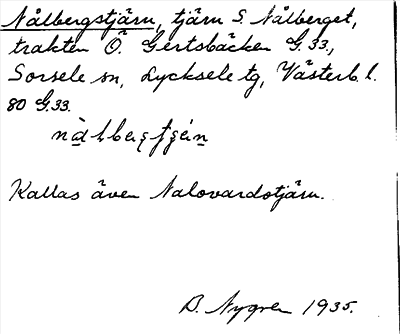 Nålbergstjärn, tjärn S. Nålberget,
trakten Ö. Gertsbäcken G.33.,
Sorsele sn, Lycksele tg, Västerb. l.
80 G.33.
Kallas även Nalovardotjärn.
B. Nygren 1935.